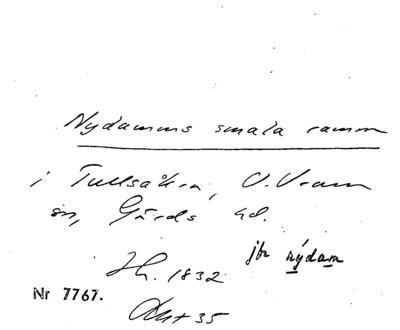 Nydamms smala ramm
i Tullsåkra, V. Vram
sn, Gärds hd.
jfr nýdam
Lh. 1832
Nr 7767.
Akt 35